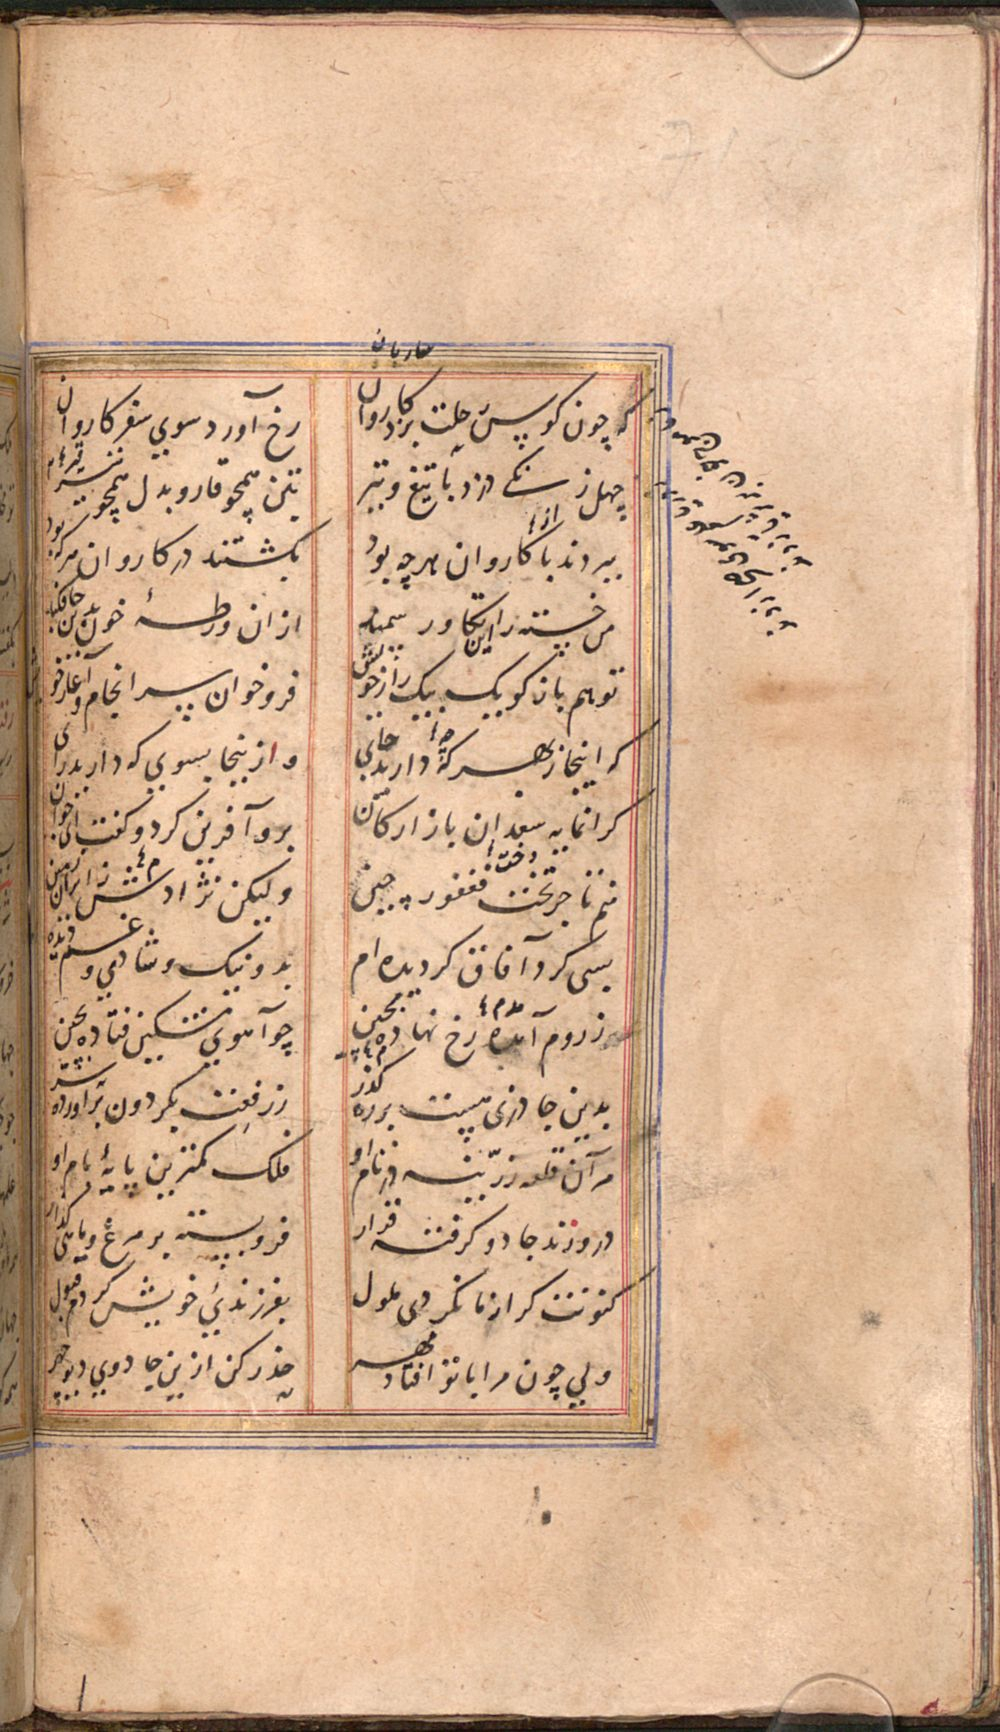 ساربان
که چون کوس رحلت بزد کاروان
رخ آورد سوی سفر کاروان
چهل زنگی دزد با تیغ و تیر
بتن همچو قار و بدل همچو قیر
ببردند با کاروان هرچه بود
بکشتند در کاروان هرکه بود
من خسته را این تکاور سمند
از آن ورطهٔ خون بدین جا فکند
تو هم باز گو یک بیک راز خویش
فرو خوان سرانجام و آغاز خویش
که اینجا ز بهر که داری جای
وز اینجا بسوی که داری رای
گرانمایه سعدان بازارگان
برو آفرین کرد و گفت ای جوان
منم تاجر تخت فغفور چین
دخت
ولیکن نژادش ز ایران زمین
بسی گرد آفاق گردیده ام
بد و نیک و شادی و غم دیده
ز روم آمده رخ نهاده بچین
چو آهوی مشکین فتاده بچین
بدین جا دزی هست بر ره گذر
ز رفعت بگردون برآورده سر
مر آن قلعه زرینه دز نام او
فلک کمترین پایهٔ بام او
درو زند جادو گرفته قرار
فرو بسته بر مرغ و ماهی گذار
کنونت گر از ما نگردی ملول
بفرزندی خویش کردم قبول
ولی چون مرا با تو افتاد مهر
حذر کن ازین جادوی دیو چهر